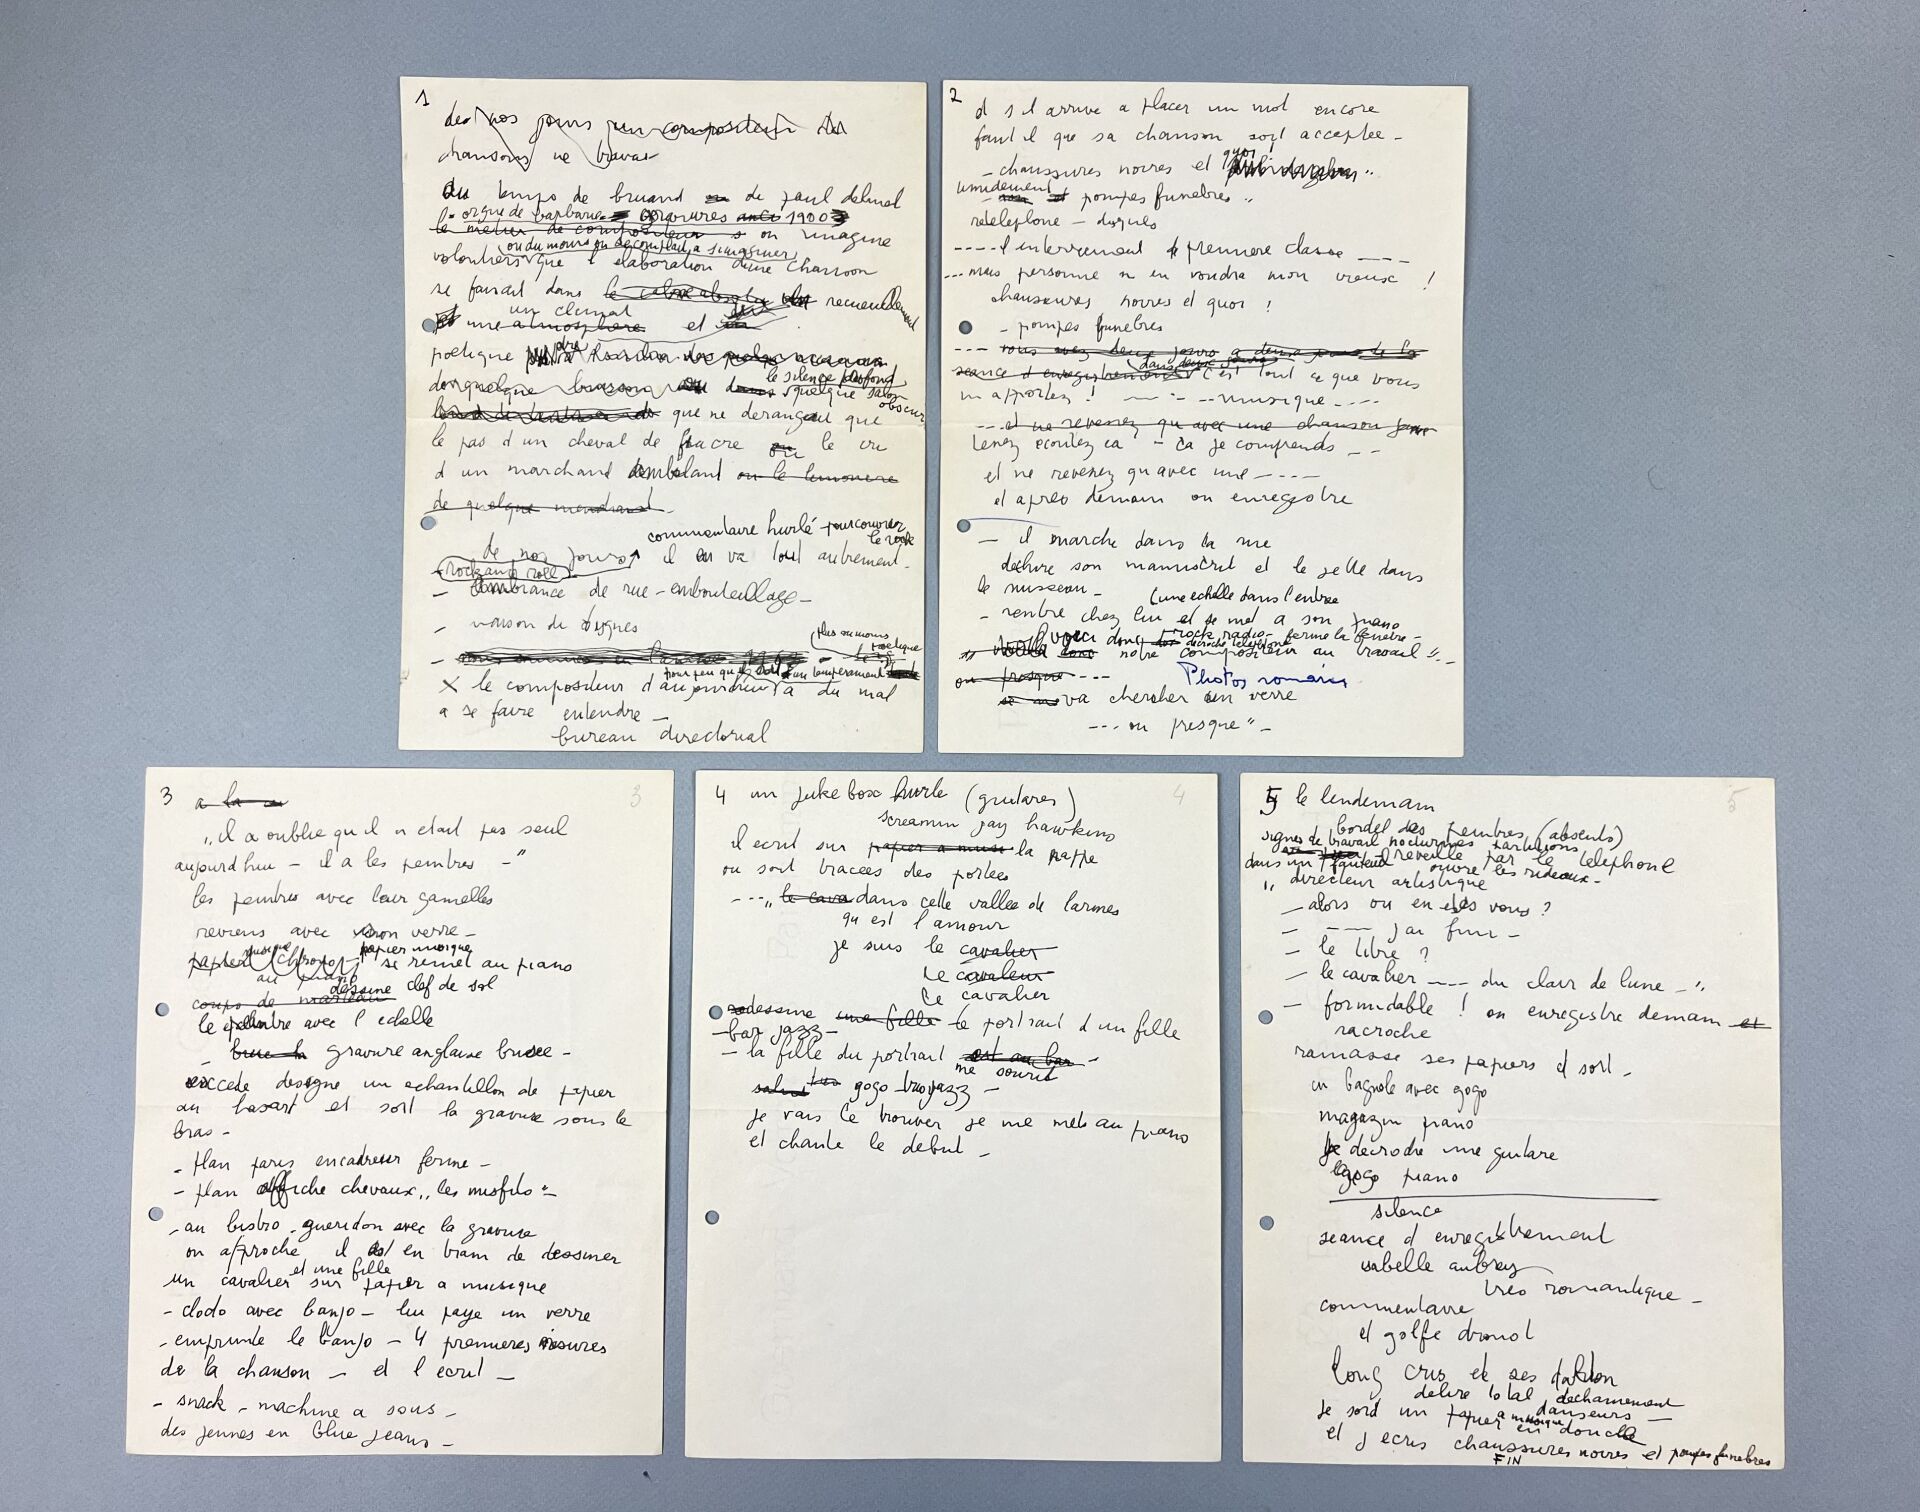 1
de nos jours un compositeur de
chansons ne travai
du temps de bruand de paul delmet
orgue de barbarie gravures 1900
le metier de compositeur on imagine
ou du moins on se complait a s imaginer
volontiers que l elaboration d une chanson
se faisait dans le calme absolu recueillement
un climat
une atmosphere et
poetique
de quelque le silence profond
quelque salon obscur
que ne derangeait que
le pas d un cheval de fiacre ou le cri
d un marchand ambulant ou la
de quelque mendiant
commentaire hurlé pour couvrir
le rock
de nos jours il en va tout autrement -
rock and roll
- ambiance de rue - embouteillage -
- maison de disques
- nous sommes en l année
plus ou moins
poetique
pour peu qu il soit d un temperament
X le compositeur d aujourd hui a du mal
a se faire entendre -
bureau directorial
2
et s il arrive a placer un mot encore
faut il que sa chanson soit acceptee -
quoi !
- chaussures noires et "
timidement
- et pompes funebres "
retelephone - disques
---- l enterrement de premiere classe ----
... mais personne n en voudra mon vieux !
chaussures noires et quoi !
- pompes funebres
---- vous avez deux jours de la
dans deux jours
seance d enregistrement c est tout ce que vous
m apportez ! - - musique ----
--- et ne revenez qu avec une chanson
tenez ecoutez ca - ca je comprends --
et ne revenez qu avec une ----
et apres demain on enregistre
- il marche dans la rue
dechire son manuscrit et le jette dans
le ruisseau -
(une echelle dans l entree
- rentre chez lui et se met a son piano
rock radio - ferme la fenetre -
decroche telephone
voici donc notre compositeur au travail "
ou presque ----
Photos romains
va chercher un verre
--- ou presque " -
3
3
a la
" il a oublie qu il n etait pas seul
aujourd hui - il a les peintres - "
les peintres avec leur gamelles
reviens avec son verre -
musique papier musique
papier (chrono) se remet au piano
au piano
dessine clef de sol
coups de marteau
le peintre avec l echelle
- gravure anglaise brisee -
excede designe un echantillon de papier
au hasart et sort la gravure sous le
bras -
- plan paris encadreur ferme -
- plan affiche chevaux " les misfits " -
- au bistro - gueridon avec la gravure
on approche il est en train de dessiner
et une fille
un cavalier sur papier a musique
- clodo avec banjo - lui paye un verre
- emprunte le banjo - 4 premieres mesures
de la chanson - et l ecrit -
- snack - machine a sous -
des jeunes en blue jeans -
4
4
un juke box hurle (guitares)
screamin jay hawkins
il ecrit sur papier a musi la nappe
ou sont tracees des portees
--- " le cava dans cette vallee de larmes
qu est l amour
je suis le cavalier
le cavaleur
le cavalier
dessine une fille le portrait d un fille
- bar jazz -
- la fille du portrait est au bar -
me sourit
salut gogo trio jazz -
je vais le trouver je me mets au piano
et chante le debut -
5
5
le lendemain
bordel des peintres (absents)
signes de travail nocturnes partitions
reveille par le telephone
dans un fauteuil ouvre les rideaux -
" directeur artistique
- alors ou en etes vous ?
- ---- j ai fini -
- le titre ?
- le cavalier ---- du clair de lune - "
- formidable ! on enregistre demain et
racroche
ramasse ses papiers et sort -
en bagnole avec gogo
magazin piano
je decroche une guitare
gogo piano
silence
seance d enregistrement
isabelle aubrey
tres romantique -
commentaire
et golfe drouot
long cris et ses
delire total dechainement
danseurs -
je sors un papier a musique en douce
et j ecris chaussures noires et pompes funebres
FIN